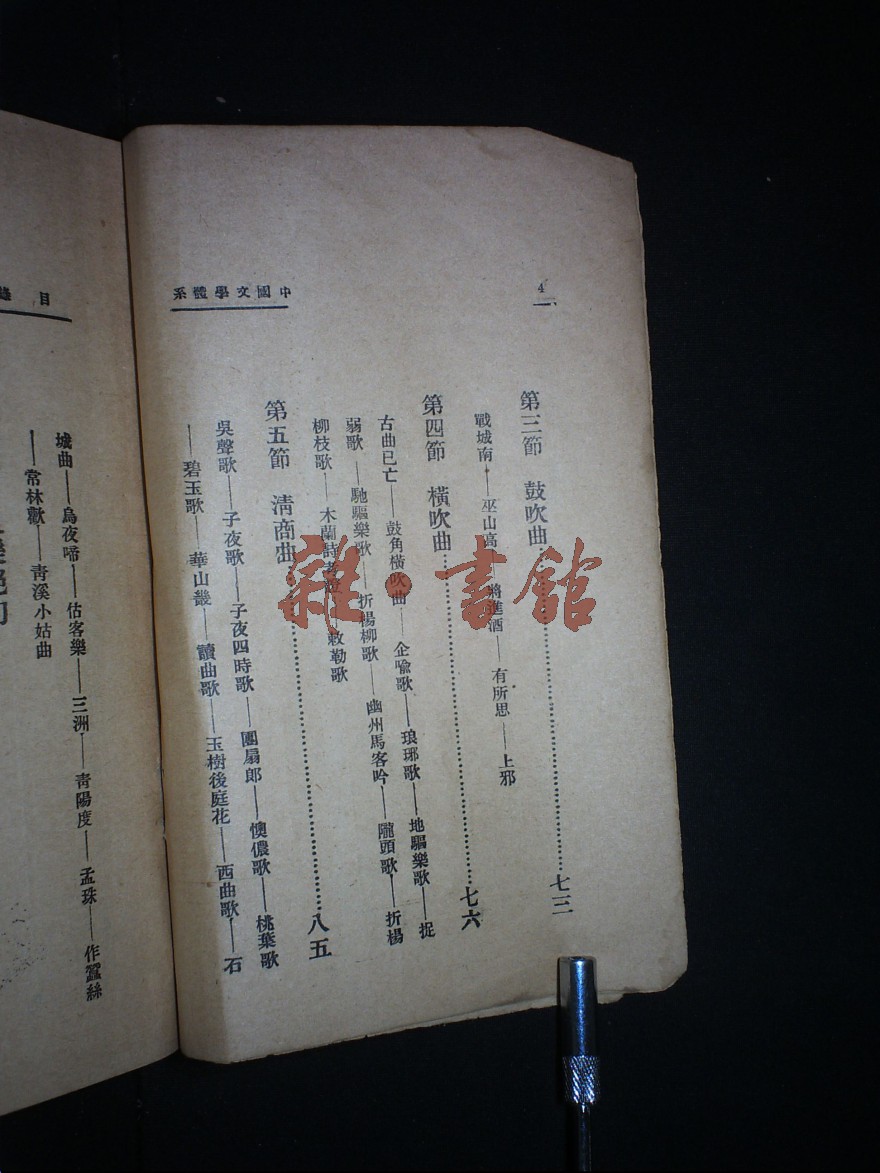 4
中國文學體系
第三節 鼓吹曲……七三
戰城南——巫山高——將進酒——有所思——上邪
第四節 橫吹曲……七六
古曲已亡——鼓角橫吹曲——企喻歌——琅琊歌——地驅樂歌——捉
弱歌——馳驅樂歌——折楊柳歌——幽州馬客吟——隴頭歌——折楊
柳枝歌——木蘭詩考證——敕勒歌
第五節 清商曲……八五
吳聲歌——子夜歌——子夜四時歌——團扇郎——懊儂歌——桃葉歌
——碧玉歌——華山畿——讀曲歌——玉樹後庭花——西曲歌——石
目錄
城曲——烏夜啼——估客樂——三洲——靑陽度——孟珠——作蠶絲
——常林歡——靑溪小姑曲
雜·書館